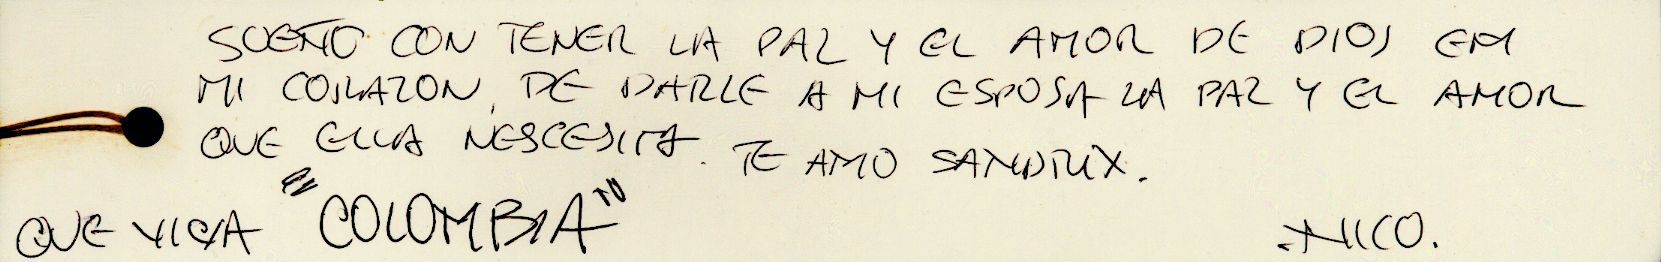 SUEÑO CON TENER LA PAZ Y EL AMOR DE DIOS EM
MI CORAZON, DE DARLE A MI ESPOSA LA PAZ Y EL AMOR
QUE ELLA NESCESITA. TE AMO SANDRIX.
QUE VIVA "COLOMBIA"
.NICO.